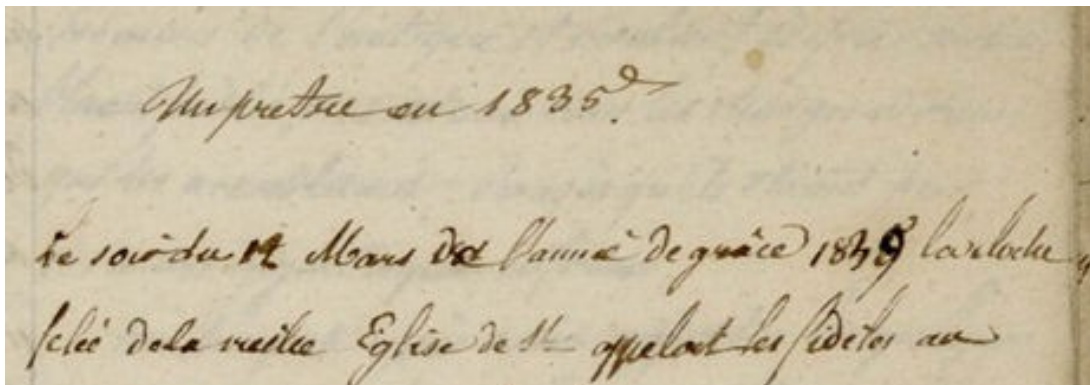 Un pretre en 1835.
Le soir du 12 Mars de l'année de grâce 1839 la cloche
felée de la vieille Eglise de St appelait les fidèles au